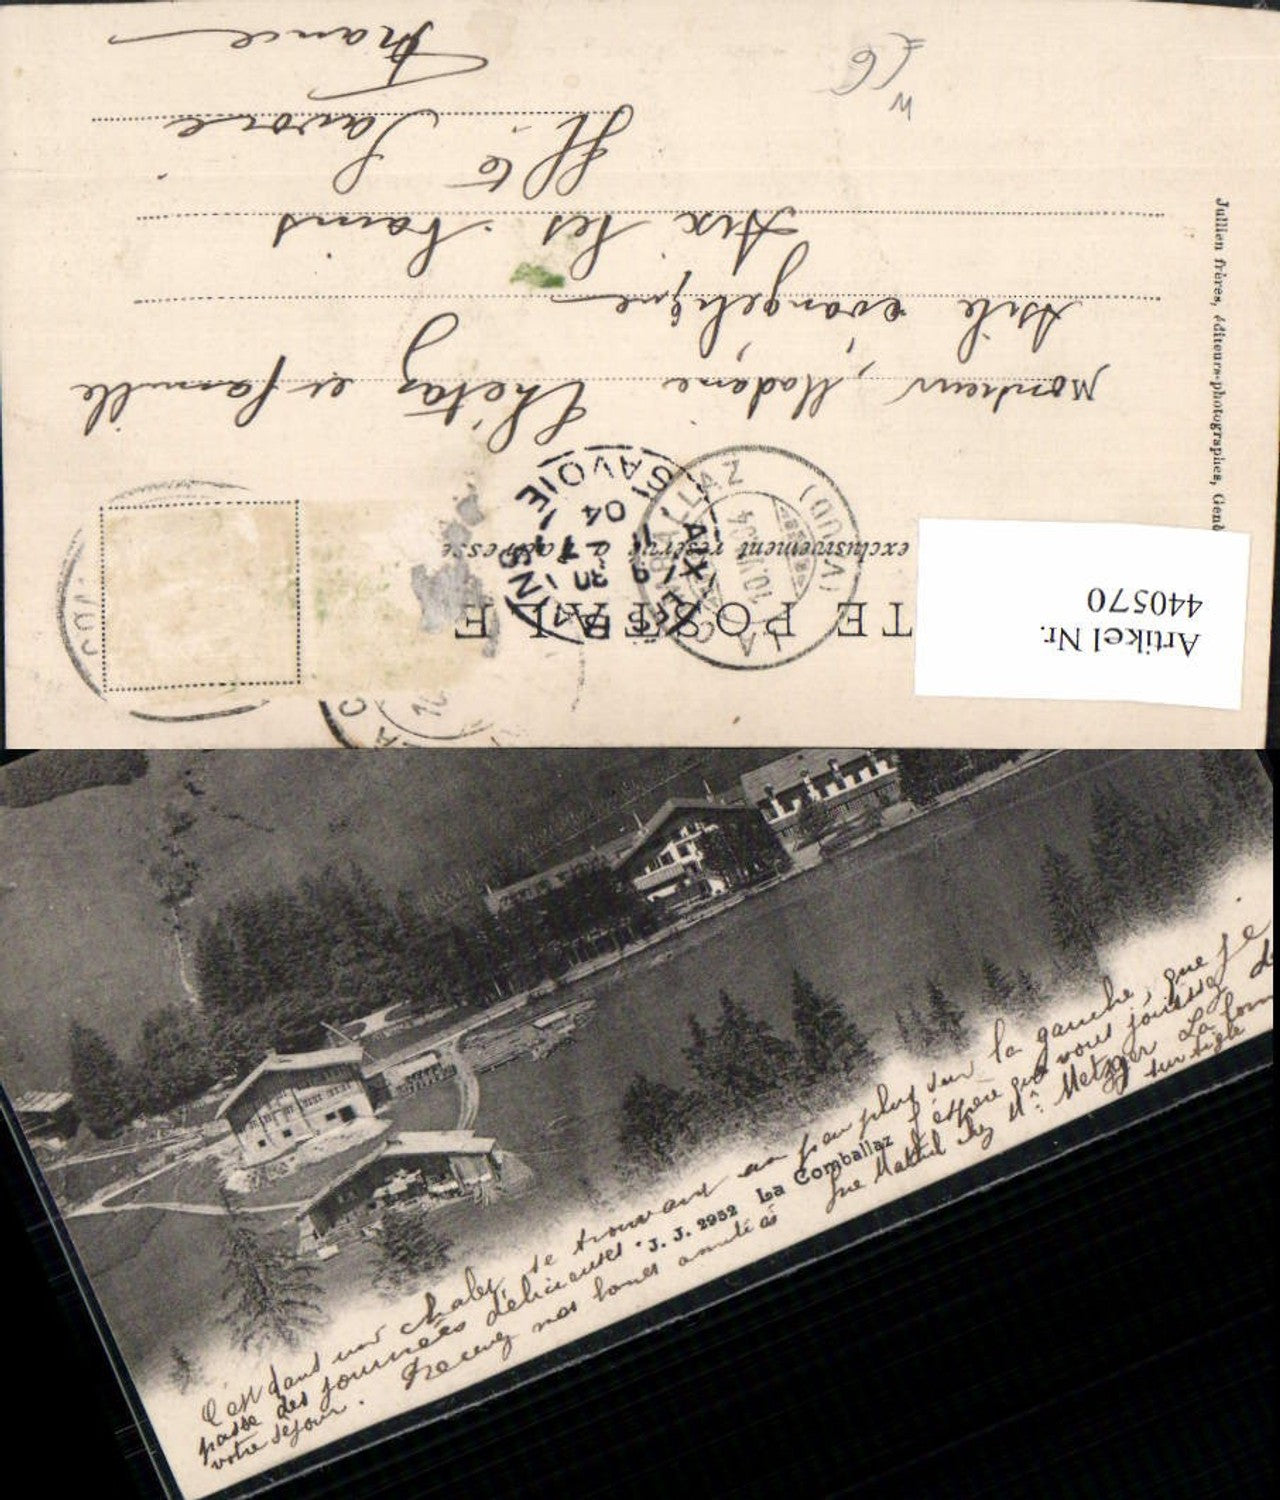 TE POSTALE
exclusivement réservé à l'adresse
LA COMBALLAZ
(VAUD)
AIX-LES-BAINS
SAVOIE
04
Monsieur, Madame Chétaz et famille
Asile évangélique
Aix les bains
Hte Savoie
France
Jullien frères, éditeurs-photographes, Genè
Artikel Nr.
440570
C'est dans un chalet, se trouvant un peu plus sur la gauche, que je
passe des journées délicieuses. J'espère que vous jouissez de
votre séjour. Recevez nos bonnes amitiés
J. J. 2952 La Comballaz
chez Mr. Metzger La
sur Aigle